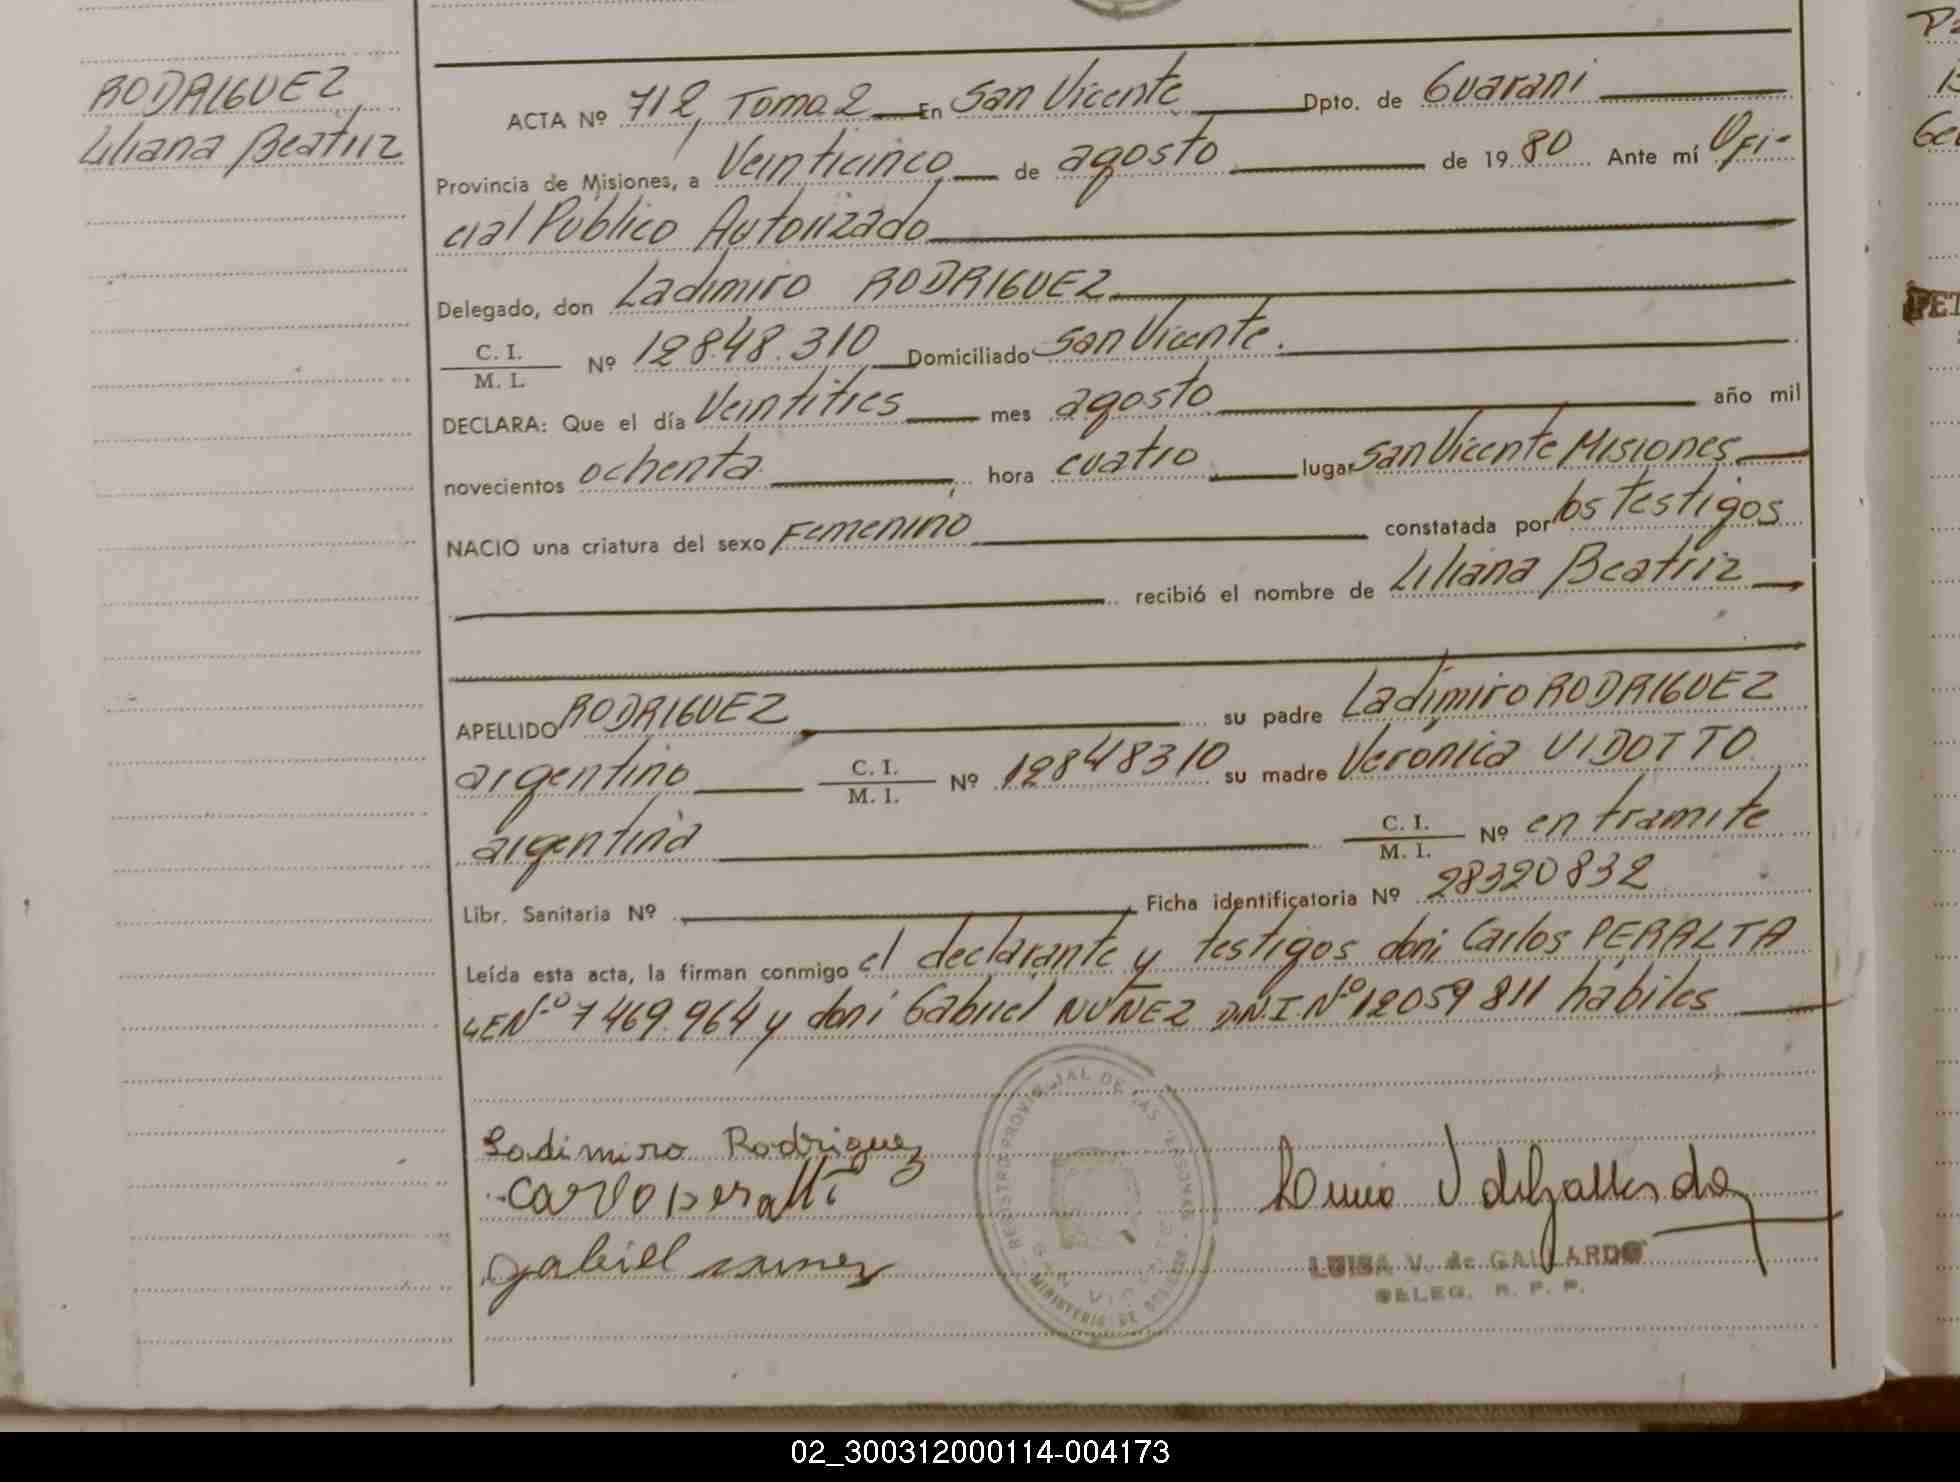 RODRIGUEZ
Liliana Beatriz
ACTA Nº 712, Tomo 2 En San Vicente Dpto. de Guarani
Provincia de Misiones, a Veinticinco de agosto de 1980 Ante mí Ofi-
cial Público Autorizado
Delegado, don Ladimiro RODRIGUEZ
C. I.
M. I. Nº 12848.310 Domiciliado San Vicente.
DECLARA: Que el día Veintitres mes agosto año mil
novecientos ochenta, hora cuatro lugar San Vicente Misiones
NACIO una criatura del sexo Femenino constatada por los Testigos
recibió el nombre de Liliana Beatriz
APELLIDO RODRIGUEZ su padre Ladimiro RODRIGUEZ
argentino C. I. M. I. Nº 12848310 su madre Verónica VIDOTTO
argentina C. I. M. I. Nº en tramite
Libr. Sanitaria Nº Ficha identificatoria Nº 28320832
Leída esta acta, la firman conmigo el declarante y testigos don: Carlos PERALTA
LE Nº 7469.964 y don: Gabriel NUÑEZ D.N.I. Nº 12059811 hábiles
Ladimiro Rodriguez
Carlo Peralta
gabriel nunez
REGISTRO PROVINCIAL DE LAS PERSONAS
SAN VICENTE
MINISTERIO DE GOBIERNO
LUISA V. de GALLARDO
DELEG. R. P. P.
PET
02_300312000114-004173